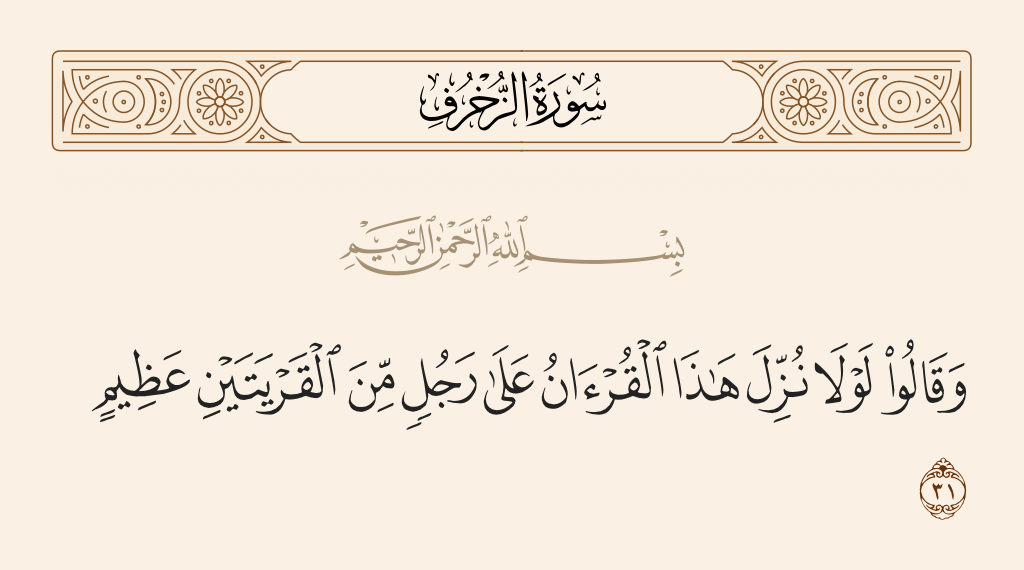 سُورَةُ الزُّخْرُفِ
بِسْمِ ٱللَّهِ ٱلرَّحْمَٰنِ ٱلرَّحِيمِ
وَقَالُوا۟ لَوْلَا نُزِّلَ هَـٰذَا ٱلْقُرْءَانُ عَلَىٰ رَجُلٍ مِّنَ ٱلْقَرْيَتَيْنِ عَظِيمٍ
٣١